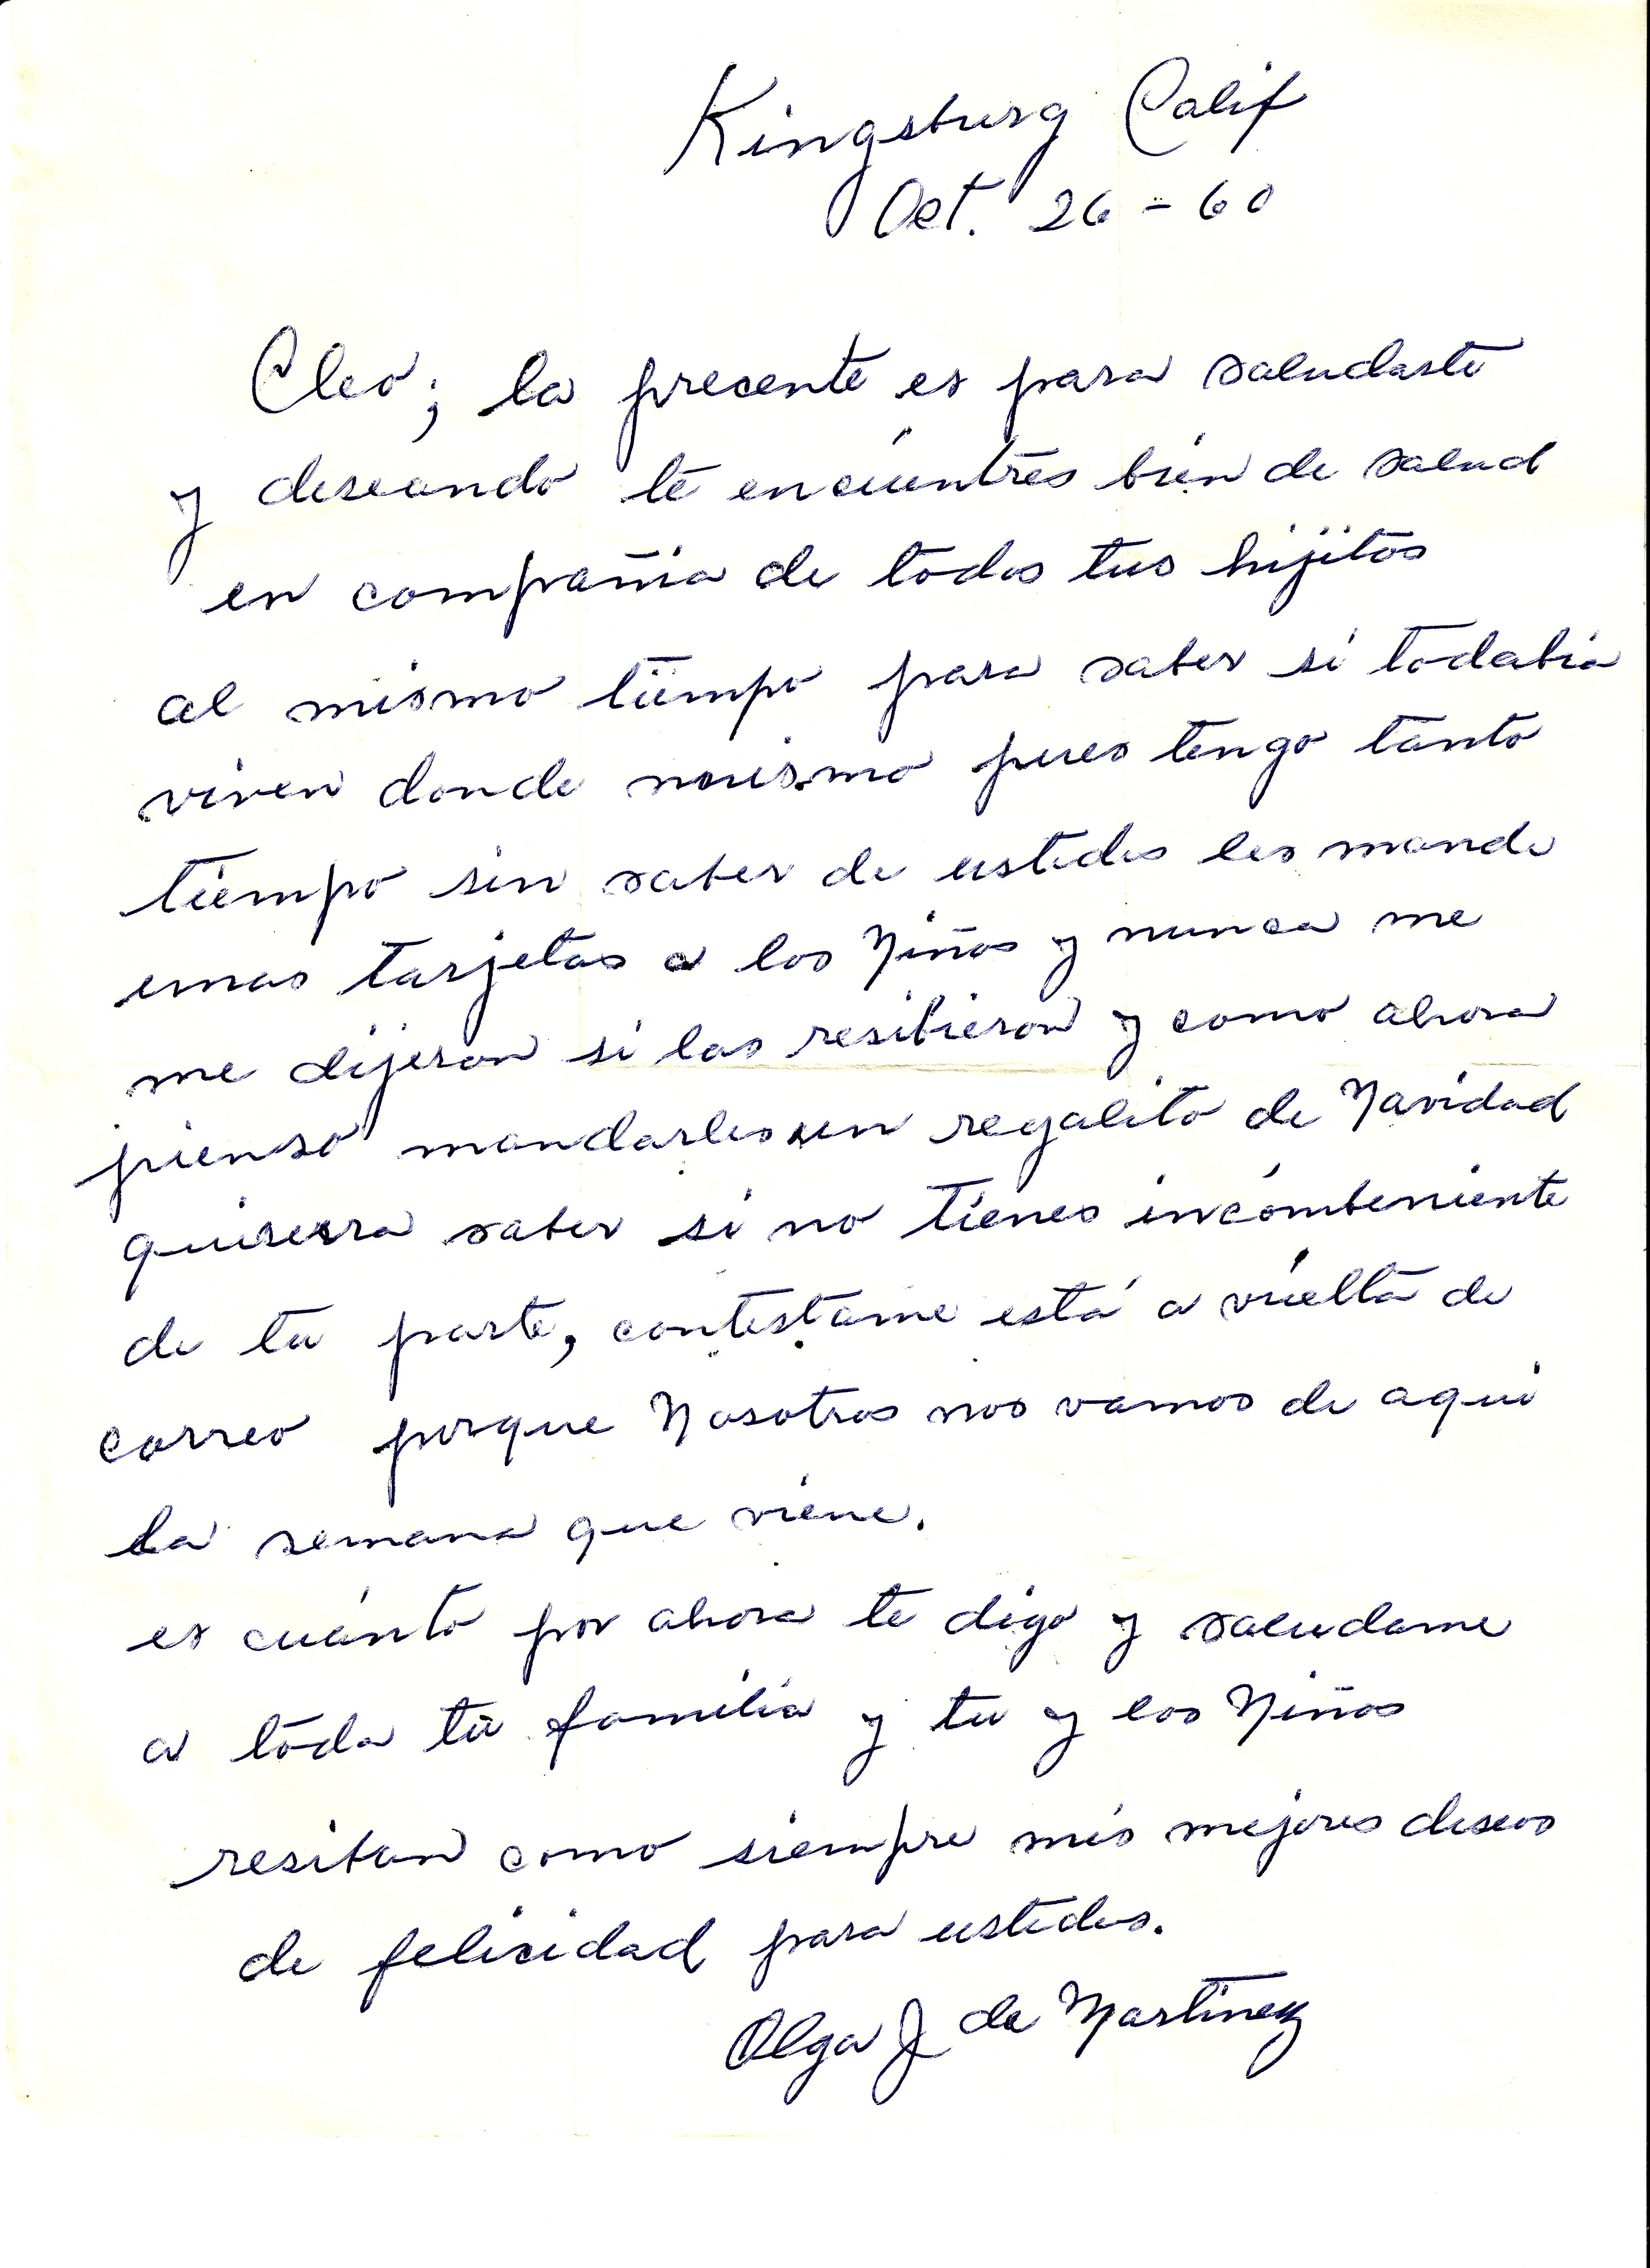 Kingsburg Calif
Oct. 26-60
Cleo; la precente es para saludarte
y deseando te encuentres bien de salud
en compañia de todos tus hijitos
al mismo tiempo para saber si todabia
viven donde mismo pues tengo tanto
tiempo sin saber de ustedes les mande
unas tarjetas a los Niños y nunca me
me dijeron si las resibieron y como ahora
pienso mandarles un regalito de Navidad
quiserra saber si no tienes incombeniente
de tu parte, contestame está a vuelta de
correo porque Nosotros nos vamos de aqui
la semana que viene.
es cuánto por ahora te digo y saludame
a toda tu familia y tu y los Niños
resiban como siempre mis mejores deseos
de felicidad para ustedes.
Olga J de Martinez